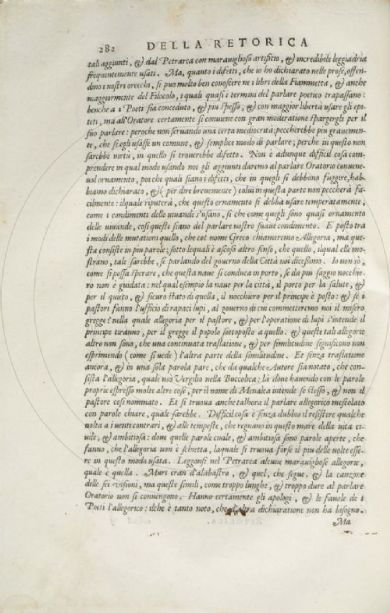 282 DELLA RETORICA
tali aggiunti, & dal Petrarca con maraviglioso artificio, & incredibile leggiadria
frequentemente usati. Ma, quanto i difetti, che io ho dichiarato nelle prose, offen-
dono i nostri orecchi, si puo molto ben conoscere ne i libri della Fiammetta, & anche
maggiormente del Filocolo, i quali quasi i termini del parlare poetico trapassano:
benche a i Poeti sia conceduto, & piu spesso, & con maggior libertà usare gli epi-
teti, ma all'Oratore certamente si conviene con gran moderatione spargergli per il
suo parlare: peroche non servando una certa mediocrità, peccherebbe piu gravemen-
te, che se gli usasse un comune, & semplice modo di parlare; perche in questo non
sarebbe virtù, in quello si troverebbe difetto. Non è adunque difficil cosa com-
prendere in qual modo usando noi gli aggiunti daremo al parlare Oratorio conuene-
vol ornamento, poi che quali siano i difetti, che in quegli si debbono fuggire, hab-
biamo dichiarato, & ( per dire brevemente ) colui in questa parte non peccherà fa-
cilmente: ilquale riputerà, che questo ornamento si debba usare temperatamente,
come i condimenti delle vivande s'usano, si che come quegli sono quasi ornamento
delle vivande, così questi siano del parlare nostro suave condimento. Et posto tra
i modi delle mutationi quello, che col nome Greco chiameremo Allegoria, ma que-
sta consiste in piu parole; sotto lequali è ascoso altro senso, che quello, ilqual elle mo-
strano, tale sarebbe, se parlando del governo della Città noi dicessimo. Io non so
come si possa sperare, che questa nave si conduca in porto, se da piu saggio nocchie-
ro non è guidata: nel qual esempio la nave per la città, il porto per la salute, &
per il quieto, & sicuro stato di quella, il nocchiero per il principe è posto: & se i
pastori fanno l'ufficio di rapaci lupi, al governo di cui commetteremo noi il misero
gregge? nella quale allegoria per il pastore, & per l'operatione di lupi s'intende il
principe tiranno, per il gregge il popolo sottoposto a quello: & queste tali allegorie
altro non sono, che una continuata traslatione, & per similitudine se gnisscono non
esprimendo ( come si vede ) l'altra parte della similitudine. Et senza traslatione
ancora, & in una sola parola pare, che da qualche Autore sia notato, che con-
sista l'allegoria, quale usò Vergilio nella Buccolica; la dove havendo con le parole
proprie espresso molte altre cose, per il nome di Menalca intende se stesso, & non il
pastore così nominato. Et si truova anche talhora il parlare allegorico mescolato
con parole chiare, quale sarebbe. Difficil cosa è senza dubbio il resistere qualche
volta a i venti contrari, & alle tempeste, che regnano in questo mare della vita ci-
vile, & ambitiosa: dove quelle parole civile, & ambitiosa sono parole aperte, che
fanno, che l'allegoria non è schietta, laquale si truova forse il piu delle volte esse-
re in questo modo usata. Leggonsi nel Petrarca alcune maravigliose allegorie,
quale è quella. Muri eran d'alabastro, & quel, che segue. & la canzone
delle sei visioni, ma queste simili, come troppo lunghe, & troppo dure al parlare
Oratorio non si convengono. Hanno certamente gli apologi, & le favole de i
Poeti l'allegorico: ilche è tanto noto, che d'altra dichiaratione non ha bisogno.
Ma